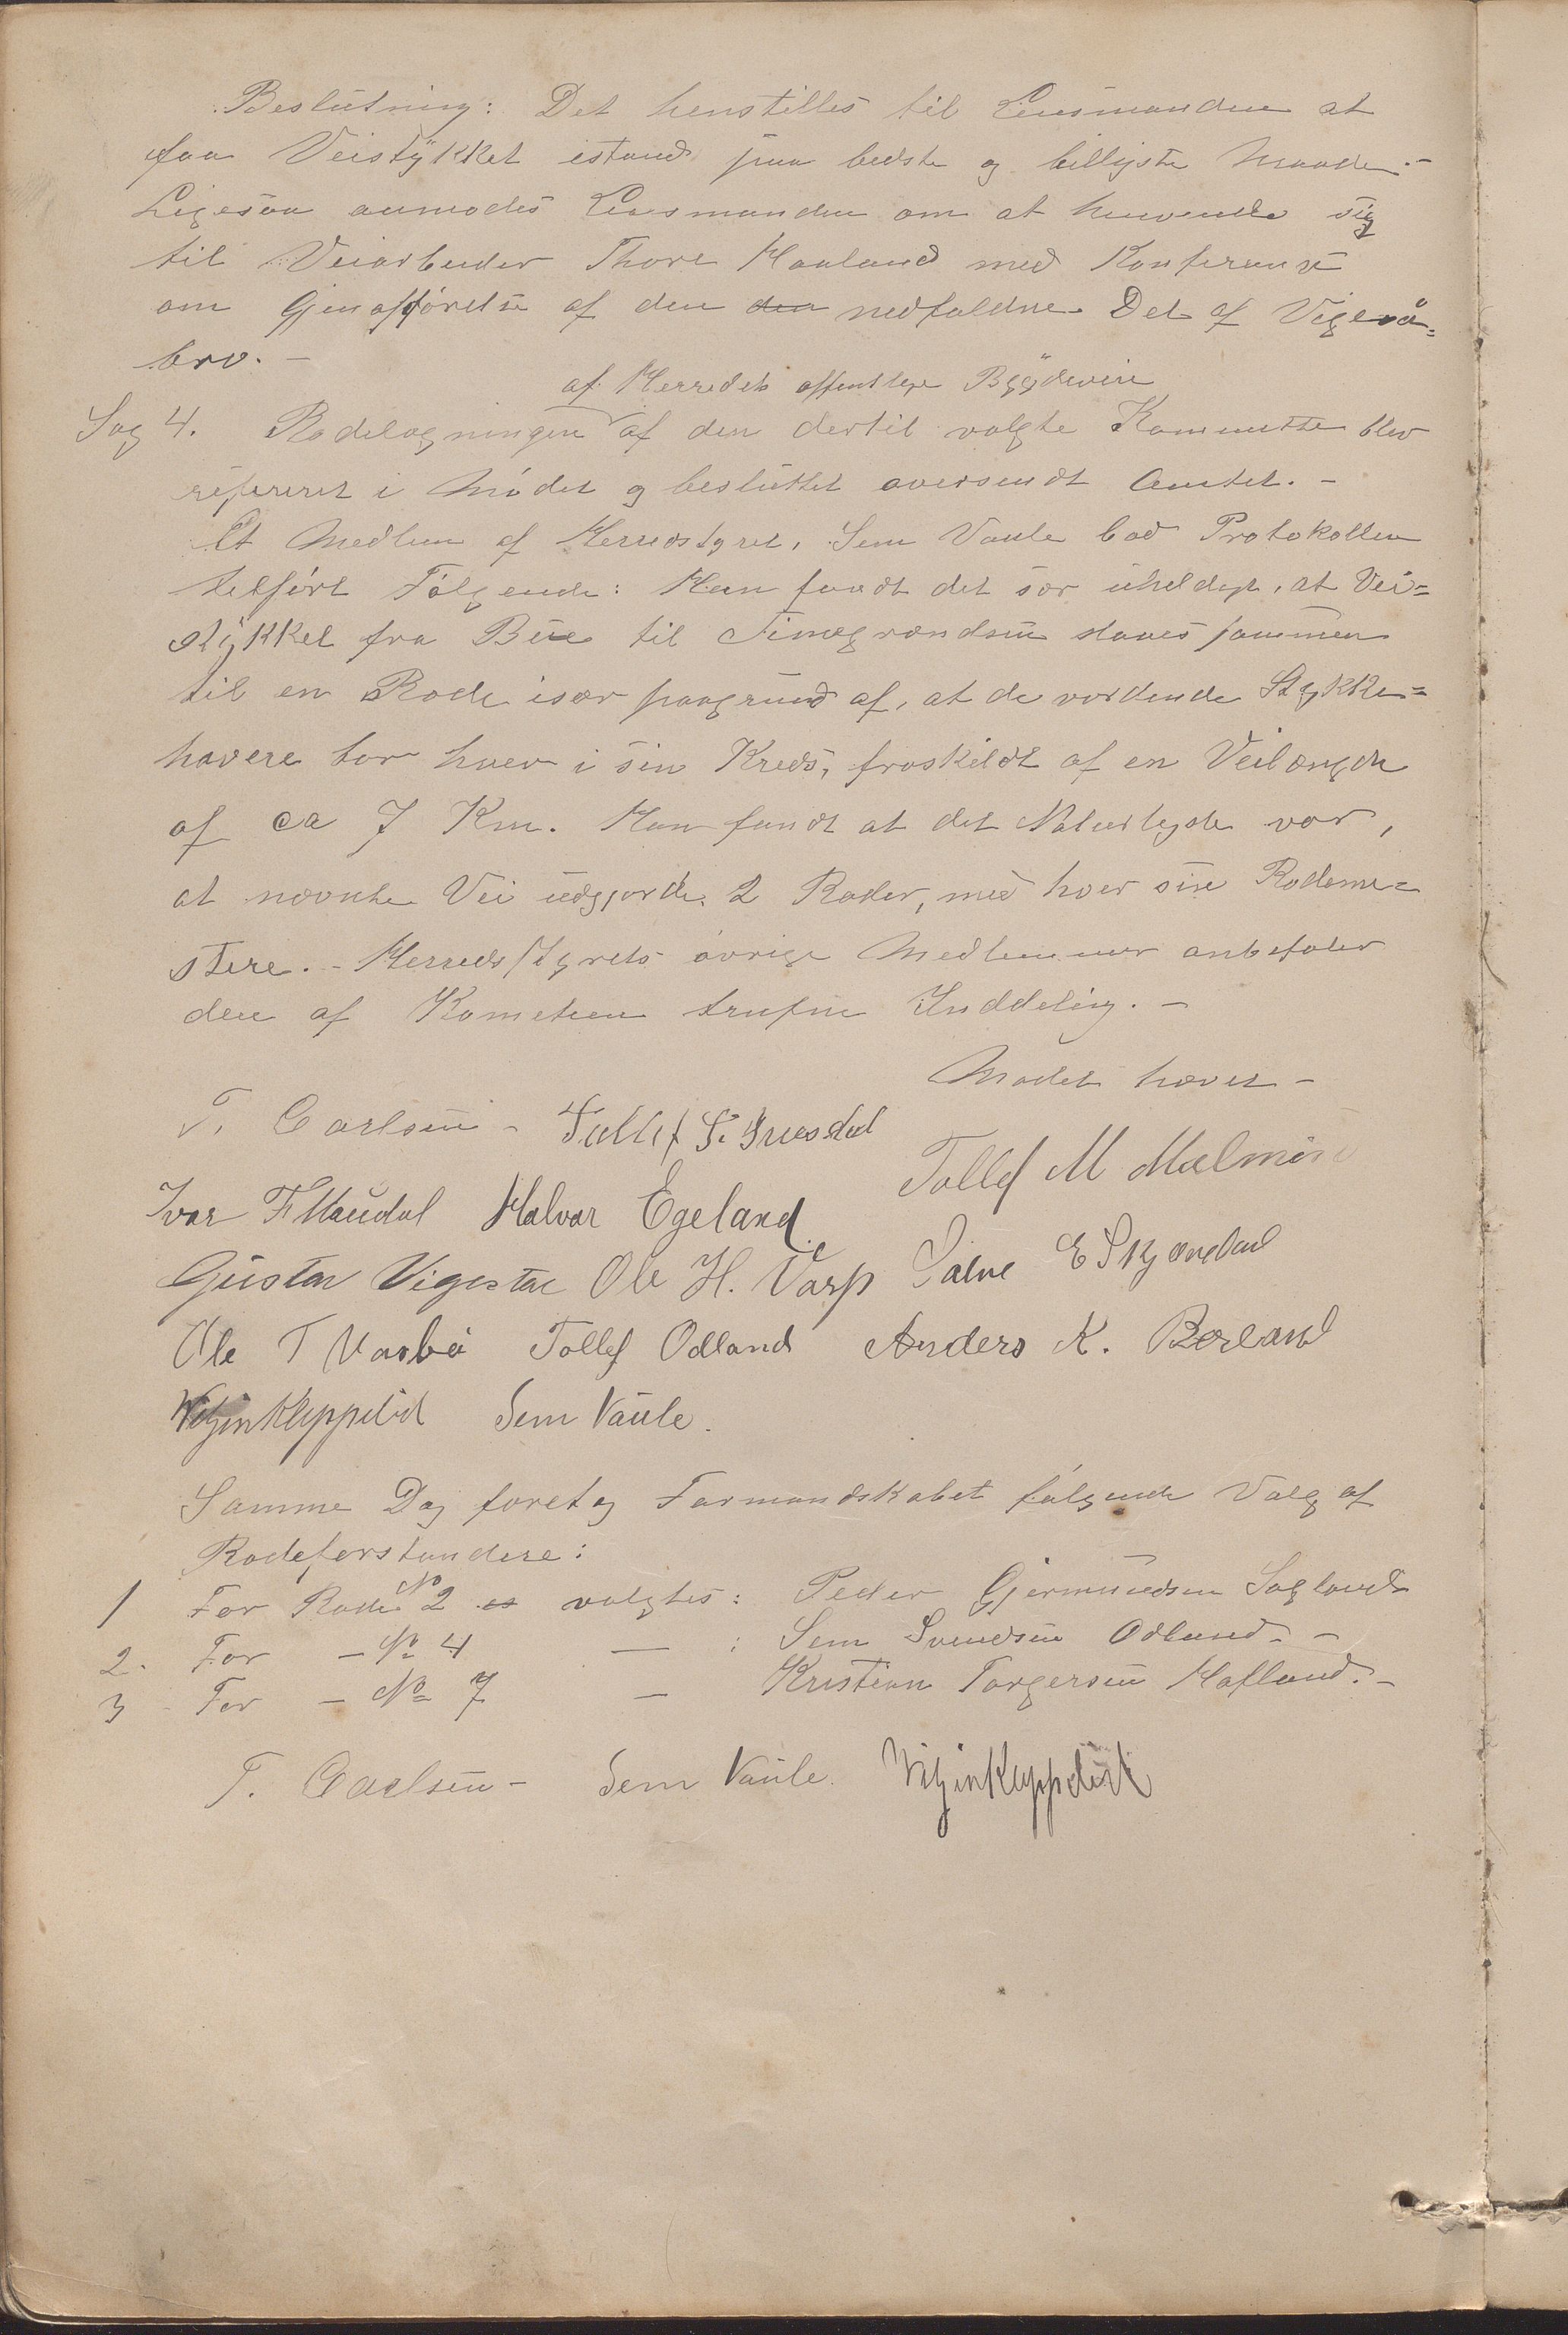 Beslutning: Det henstilles til Lensmanden at
faa Veistykket istand paa bedste og billigste Maade. -
Ligesaa anmodes Lensmanden om at henvende sig
til Veiarbeider Thore Haaland med Konferanse
om Gjenopførelse af den den nedfaldne Del af Vigeså=
bro. -
af Herredets offentlige Bygdeveie
Sag 4. Rodelægningen af den dertil valgte Kommitte blev
refereret i Mødet og besluttet oversendt Amtet. -
Et Medlem af Herredstyret, Sem Vaule bad Protokollen
tilført Følgende: Han fandt det sær uheldigt, at Vei=
stykket fra Bue til Timegrændsen slaaes sammen
til en Rode især paagrund af, at de vordende Stykke=
havere bor hver i sin Kreds, fraskildt af en Veilængde
af ca 7 Km. Han fandt at det Naturligste var,
at nævnte Vei udgjorde 2 Roder, med hver sine Rodeme=
stere. - Herredsstyrets øvrige Medlemmer anbefaler
den af Kometeen trufne Inddeling. -
Mødet hævet -
T. Carlsen - Tollef S. Gruesdal
Tollef M Malmin
Ivar F Maudal Halvar Egeland
Gustav Vigestae Ole H. Varp Salve E Skjævdal
Ole T Vasbø Tollef Odland Anders K. Børland
Kleppelid Sem Vaule.
Samme Dag foretog Formandskabet følgende Valg af
Rodeforstandere:
1 For Rode No 2 es valgtes: Peder Gjermundsen Sagland
2. For - No 4 — : Sem Svendsen Odland. -
3 For - No 7 — Kristian Torgersen Hafland. -
T. Carlsen - Sem Vaule. Kleppelid